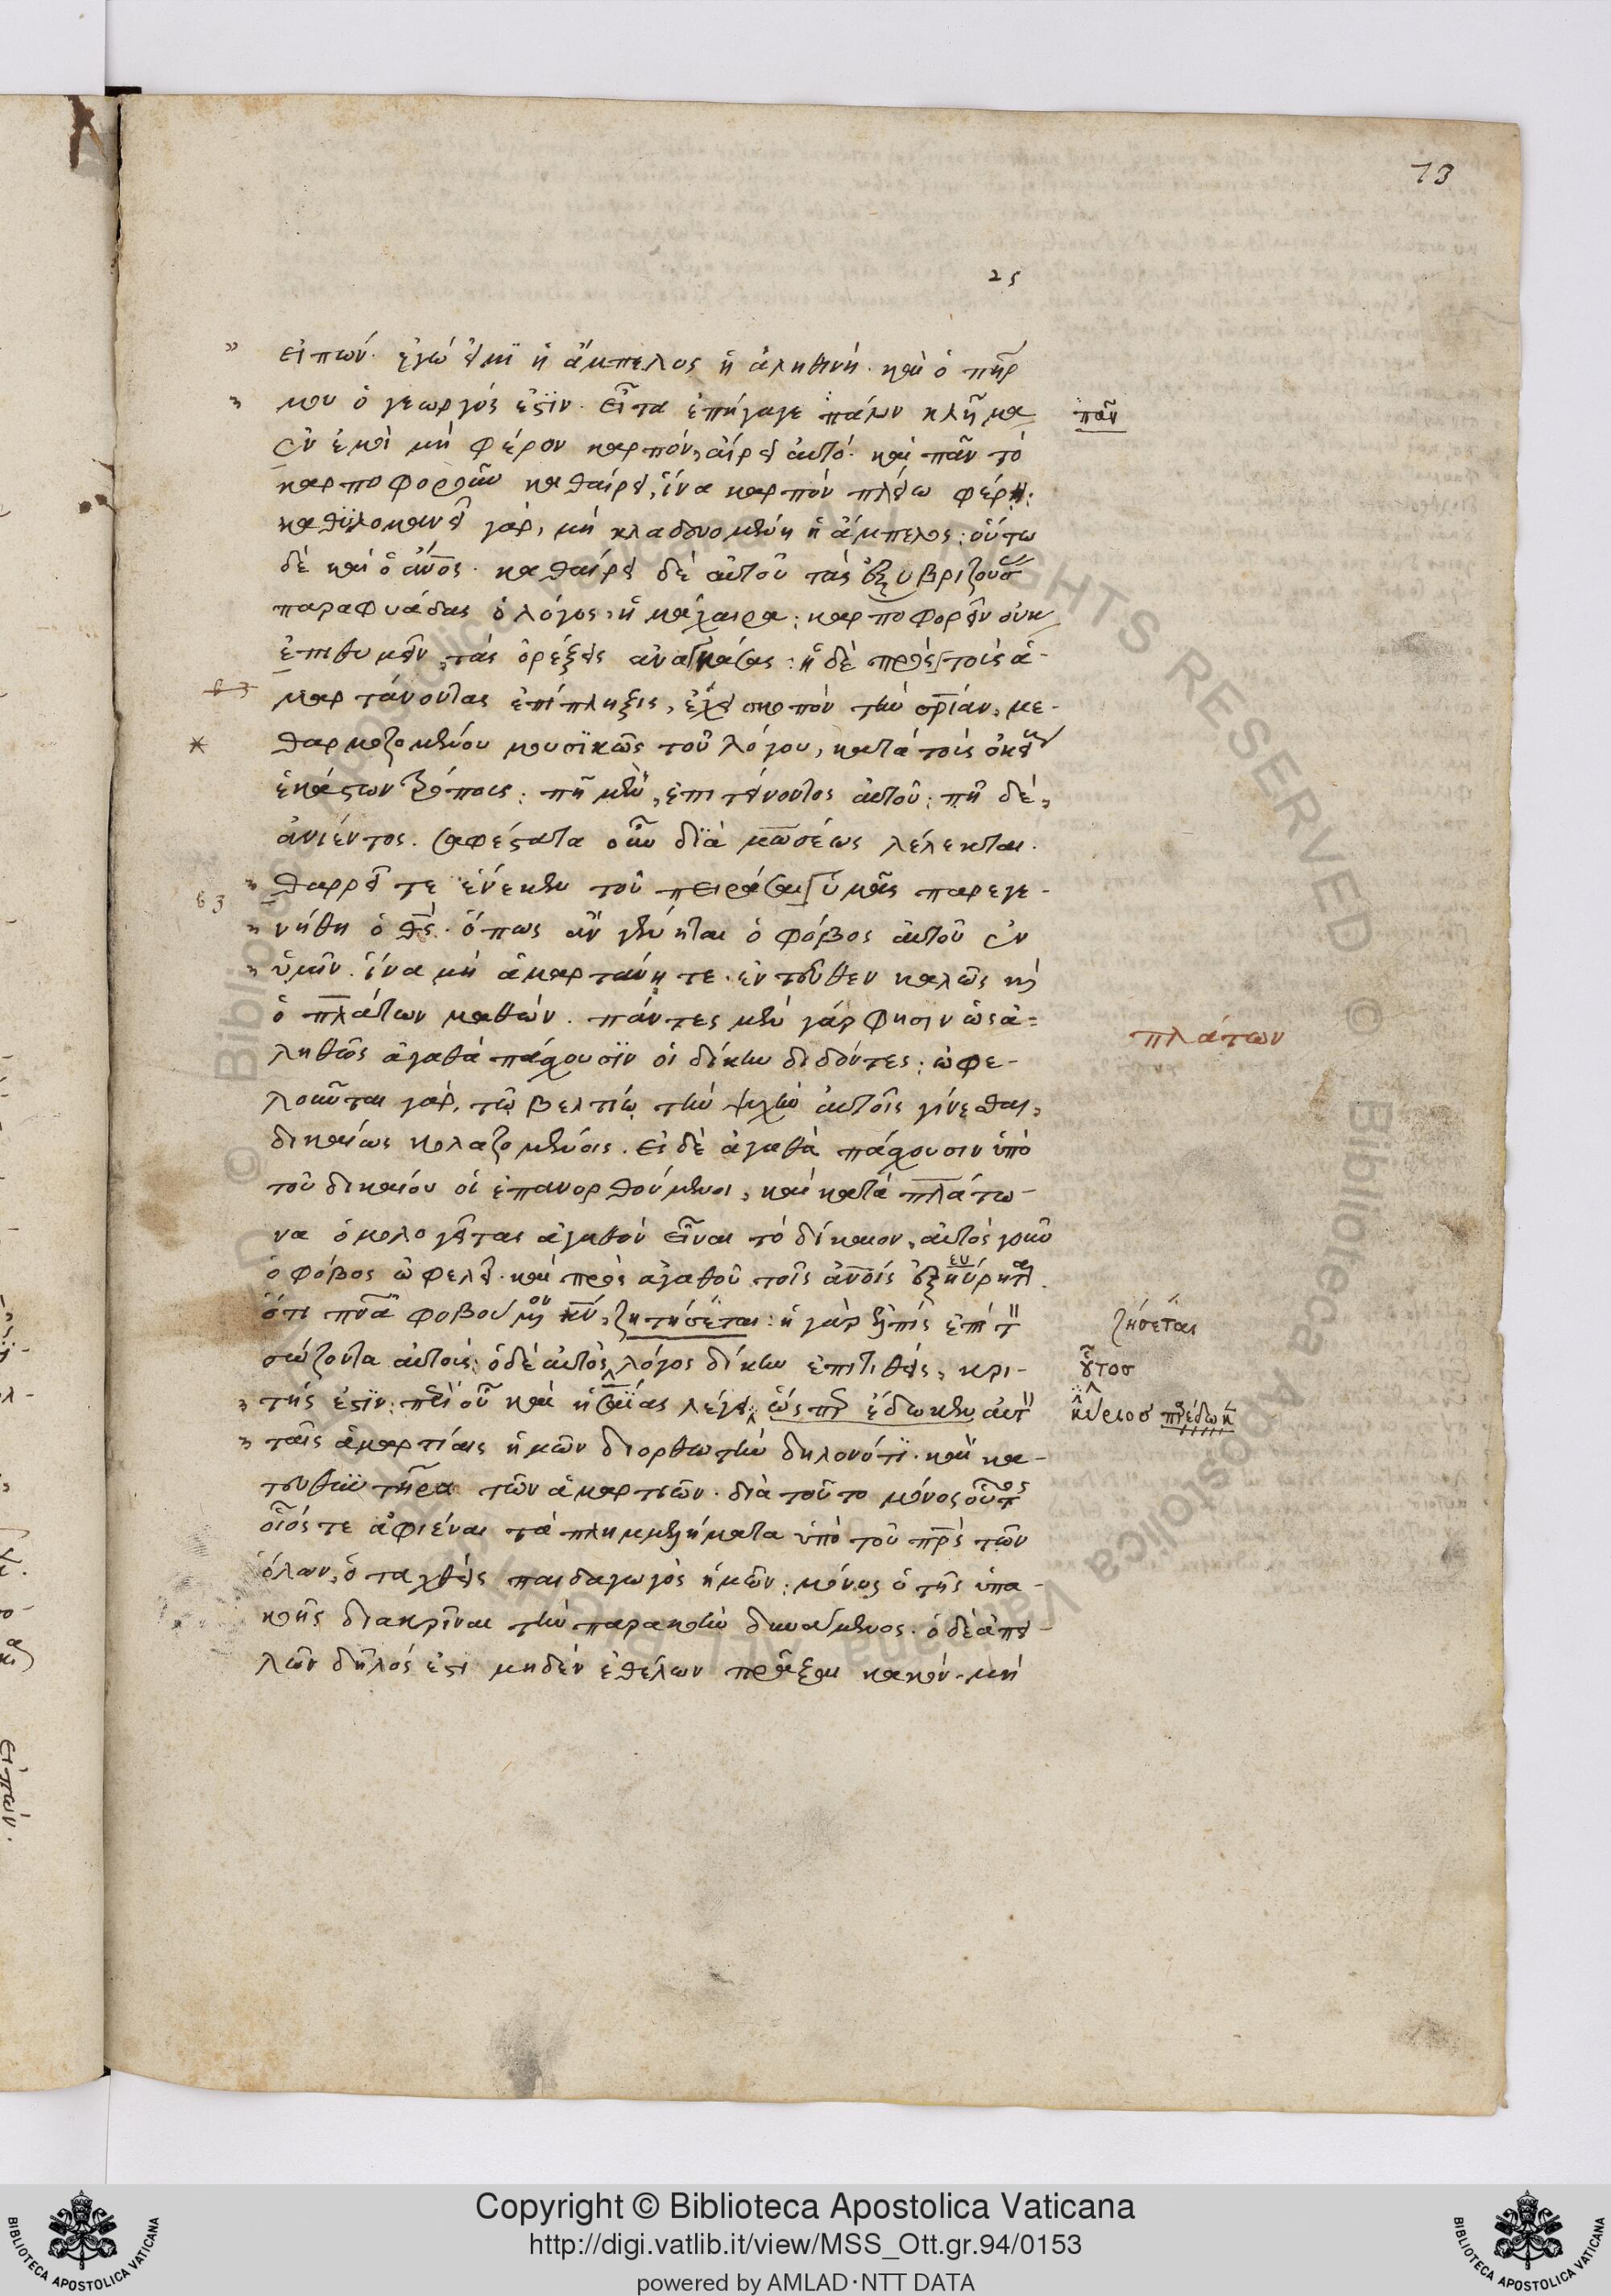 73
25
εἰπών. ἐγώ εἰμϊ ἡ ἄμπελος ἡ ἀληθινή. καὶ ὁ πηρ
μου ὁ γεωργός ἐστϊν. εἶτα ἐπήγαγε πάλιν κλῆμα
πᾶν
ἐν ἐμοὶ μὴ φέρον καρπόν, αἴρει αὐτό. καὶ πᾶν τὸ
καρποφοροῦν καθαίρει, ἵνα καρπὸν πλείω φέρῃ:
καθϋλομανεῖ γάρ, μὴ κλαδουομένη ἡ ἄμπελος: οὕτω
δὲ καὶ ὁ ἄνος. καθαίρει δὲ αὐτοῦ τὰς ἐξυβριζούσ
παραφυάδας ὁ λόγος, ἡ μάχαιρα: καρποφορεῖν οὐκ
ἐπιθυμεῖν, τὰς ὀρέξεις ἀναγκάσας: ἡ δὲ πρὸς τοὺς ἁ-
63
μαρτάνοντας ἐπίπληξις, ἔχει σκοπὸν τὴν σρίαν, με-
*
θαρμοζομένου μουσϊκῶς τοῦ λόγου, κατὰ τοὺς οἰκείων
ἑκάστων τρόπους: πῆ μὲν, ἐπιτείνοντος αὐτοῦ: πῆ δὲ,
ἀνιέντος. σαφέστατα οὖν δϊὰ μωσέως λέλεκται.
63
θαρρεῖτε ἕνεκεν τοῦ πειράσαι ὑμᾶς παρεγε-
νήθη ὁ θς. ὅπως ἂν γένηται ὁ φόβος αὐτοῦ ἐν
ὑμῖν. ἵνα μὴ ἁμαρτάνητε. ἐντεῦθεν καλῶς κὶ
ὁ πλάτων μαθών. πάντες μὲν γάρ φησιν ὡς ἀ=
πλάτων
ληθῶς ἀγαθὰ πάσχουσϊν οἱ δίκην διδόντες: ὠφε-
λοῦνται γάρ, τῷ βελτίω τὴν ψυχὴν αὐτοῖς γίνεσθαι,
δικαίως κολαζομένοις. εἰ δὲ ἀγαθὰ πάσχουσιν ὑπὸ
τοῦ δικαίου οἱ ἐπανορθούμενοι, καὶ κατὰ πλάτω-
να ὁμολογεῖται ἀγαθὸν εἶναι τὸ δίκαιον, αὐτὸς γοῦν
ὁ φόβος ὠφελεῖ. καὶ πρὸς ἀγαθοῦ τοῖς ἀνοις ἐξηύρηται.
ὅτι πνα φοβουμένον κν, ζητήσεται: ἡ γὰρ ἐλπὶς ἐπὶ τ
ζήσεται
σώζοντα αὐτούς: ὁ δὲ αὐτὸς λόγος δίκην ἐπιτιθεὶς, κρι-
οὗτοσ
τής ἐστϊν: περὶ οὗ καὶ ἡσαΐας λέγει, ὡς πρ ἔδωκεν αὐτ
κύριοσ
ταῖς ἁμαρτίαις ἡμῶν διορθωτὴν δηλονότϊ. καὶ κα-
τευθυντῆρα τῶν ἁμαρτιῶν. διὰ τοῦτο μόνος οὗτος
οἷός τε ἀφιέναι τὰ πλημμελήματα ὑπὸ τοῦ πρς τῶν
ὅλων, ὁ ταχθεὶς παιδαγωγὸς ἡμῶν: μόνος ὁ τῆς ὑπα-
κοῆς διακρῖναι τὴν παρακοὴν δυνάμενος. ὁ δὲ ἀπει-
λῶν δῆλός ἐστι μηδὲν ἐθέλων πρᾶξαι κακόν. μὴ
εἰπών.
Copyright © Biblioteca Apostolica Vaticana
http://digi.vatlib.it/view/MSS_Ott.gr.94/0153
powered by AMLAD·NTT DATA